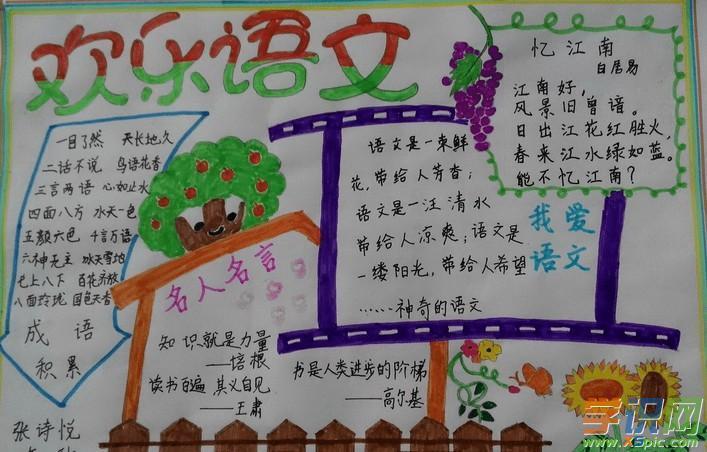 欢乐语文
一目了然 天长地久
二话不说 鸟语花香
三言两语 心如止水
四面八方 水天一色
五颜六色 千言万语
六神无主 冰天雪地
七上八下 百花齐放
八面玲珑 国色天香
成语
积累
张诗悦
名人名言
知识就是力量
——培根
读书百遍 其义自见
——王肃
书是人类进步的阶梯
——高尔基
语文是一束鲜
花,带给人芳香;
语文是一汪清水
带给人凉爽;语文是
一缕阳光,带给人希望
……神奇的语文
忆江南
白居易
江南好,
风景旧曾谙。
日出江花红胜火,
春来江水绿如蓝。
能不忆江南?
我爱
语文
学识网
www.xspic.com